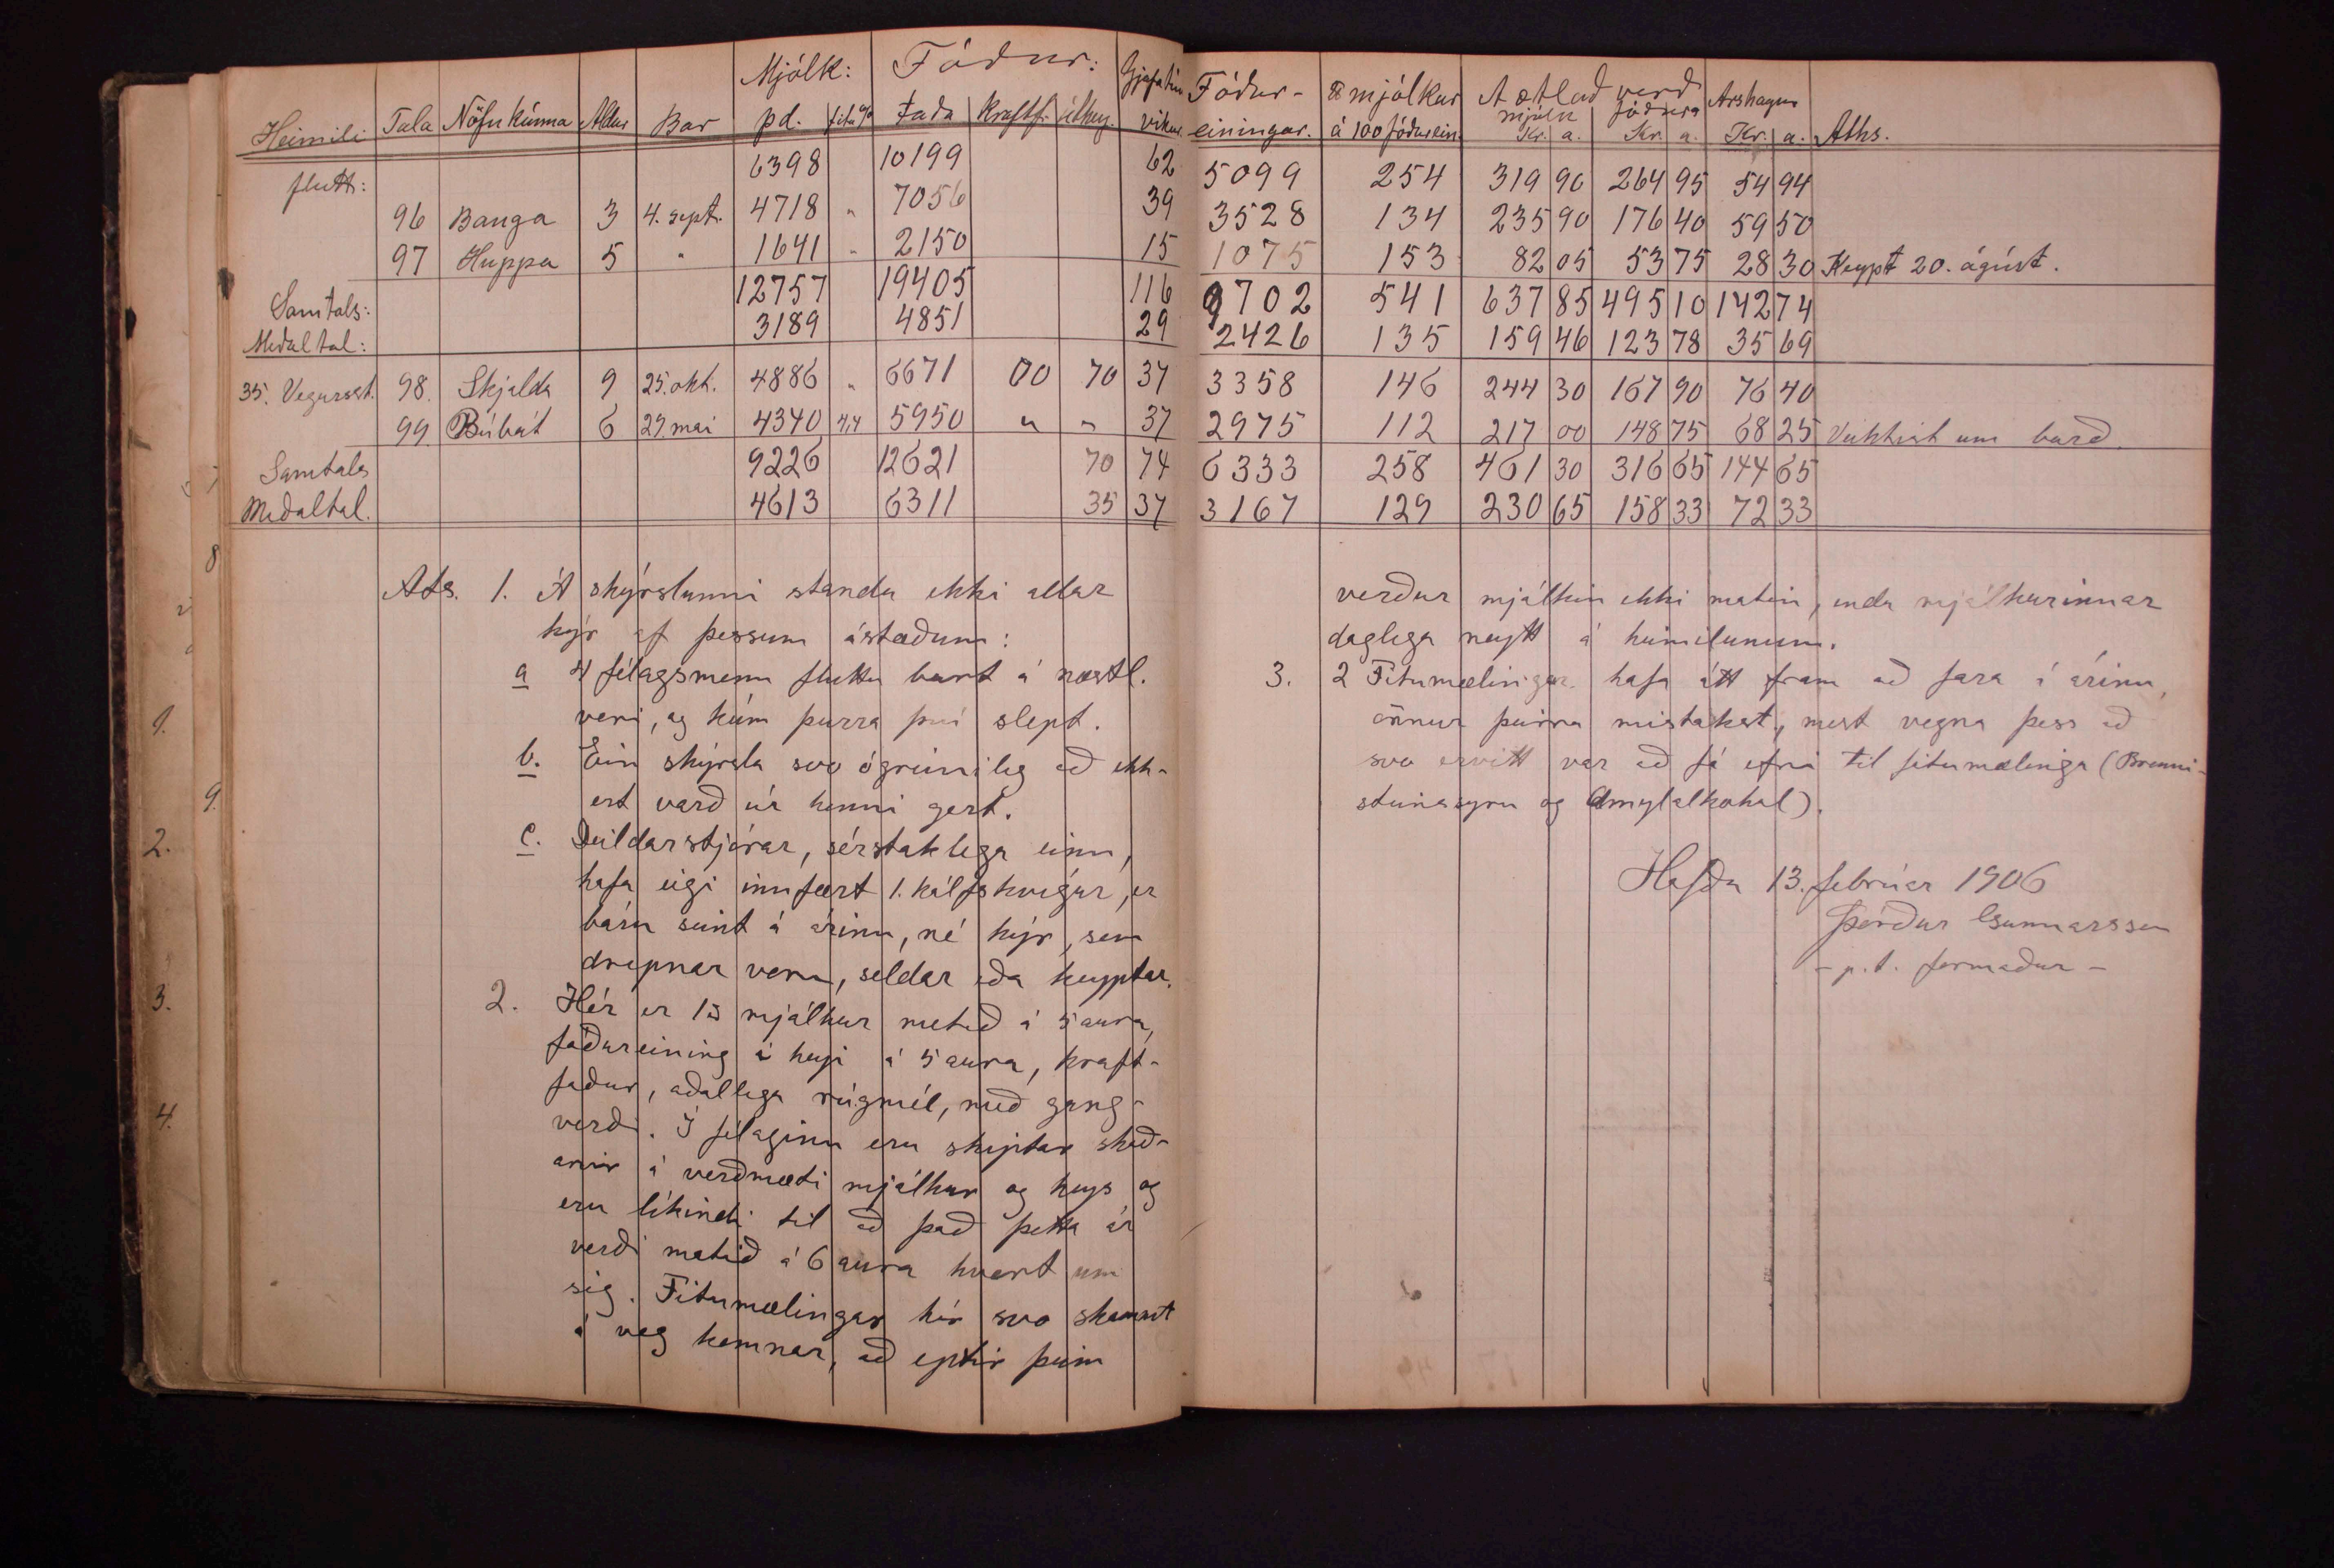 Mjólk: Fóður: Gjafatími
Heimili Tala Nöfn kúnna Aldur Bar pd. fita % taða kraftf. úthey. vikur
flutt: 6398 10199 62
96 Banga 3 4. sept. 4718 " 7056 39
97 Huppa 5 " 1641 " 2150 15
Samtals: 12757 19405 116
Meðaltal: 3189 4851 29
35. Vegurast. 98. Skjalda 9 25. okt. 4886 " 6671 00 70 37
99. Búbót 6 27. mai 4340 4,4 5950 " " 37
Samtals 9226 12621 70 74
Meðaltal. 4613 6311 35 37
Ats. 1. Á skýrslunni standa ekki allar
kýr af þessum ástæðum:
a 4 félagsmenn fluttu burt á næstl.
vori, og kúm þurra því slept.
b. Ein skýrsla svo ógreinileg að ekk-
ert varð úr henni gert.
c. Deildarstjórar, sérstaklega einn,
hafa eigi innfært 1. kálfs kvígur, er
báru seint á árinu, né kýr, sem
drepnar voru, seldar eða keyptar.
2. Hér er 1 ℔ mjólkur metið á 5 aura,
fóðureining í heyi á 5 aura, kraft-
fóður, aðallega rúgmél, með gang-
verði. Í félaginu eru skiptar skoð-
anir á verðmæti mjólkur og heys og
eru líkindi til að það þetta ár
verði metið á 6 aura hvert um
sig. Fitumælingar hér svo skammt
á veg komnar, að eptir þeim
Fóður- ℔ mjólkur Áætlað verð Árshagur
einingar. á 100 fóðurein. mjólk Kr. a. fóðurs Kr. a. Kr. a. Aths.
5099 254 319 90 264 95 54 94
3528 134 235 90 176 40 59 50
1075 153 82 05 53 75 28 30 Keypt 20. ágúst.
9702 541 637 85 495 10 142 74
2426 135 159 46 123 78 35 69
3358 146 244 30 167 90 76 40
2975 112 217 00 148 75 68 25 um burð.
6333 258 461 30 316 65 144 65
3167 129 230 65 158 33 72 33
verður mjólkin ekki metin, enda mjólkurinnar
daglega neytt á heimilunum.
3. 2 Fitumælingar hafa átt fram að fara í árinu,
önnur þeirra mistókst, mest vegna þess að
svo ervitt var að fá efni til fitumælinga (Brenni-
steinssýru og Amylalkohol).
Höfða 13. febrúar 1906
Þórður Gunnarsson
- p.t. formaður -
8
1.
9.
2.
3.
4.